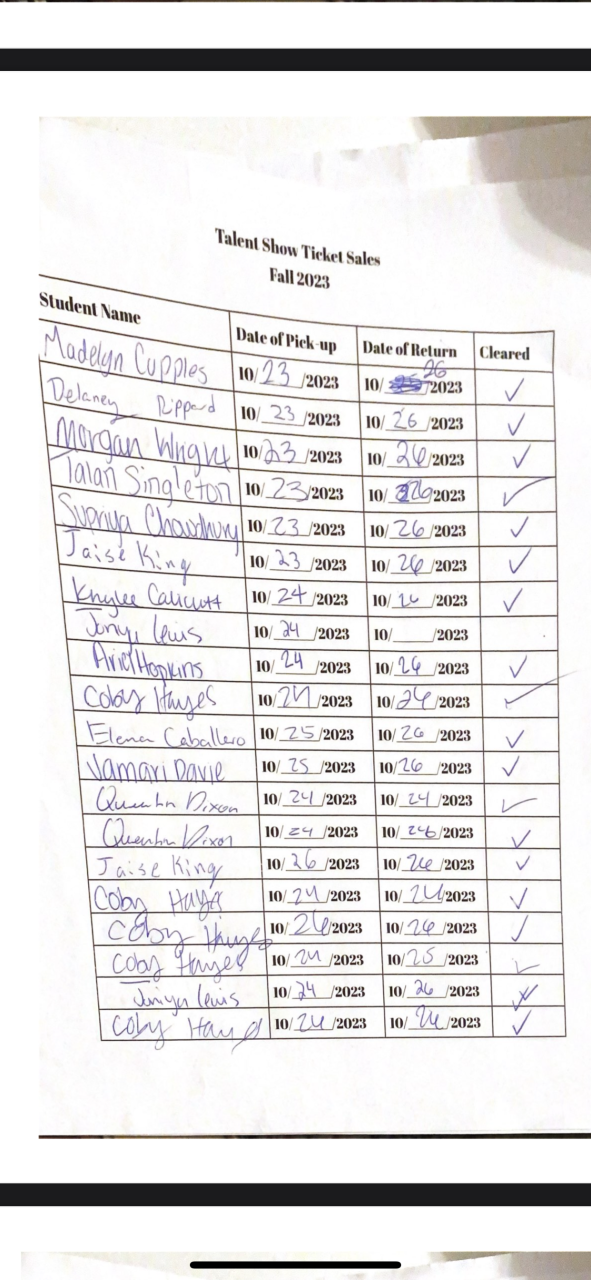 Talent Show Ticket Sales
Fall 2023
Student Name Date of Pick-up Date of Return Cleared
Madelyn Cupples 10/23/2023 10/26/2023 ✓
Delaney Rippard 10/23/2023 10/26/2023 ✓
Morgan Wright 10/23/2023 10/26/2023 ✓
Talan Singleton 10/23/2023 10/26/2023 ✓
Supriya Chowdhury 10/23/2023 10/26/2023 ✓
Jaise King 10/23/2023 10/26/2023 ✓
Khylee Calicutt 10/24/2023 10/26/2023 ✓
Lewis 10/24/2023 10/___/2023
Ariel Hopkins 10/24/2023 10/26/2023 ✓
Coby Hayes 10/24/2023 10/24/2023 ✓
Elena Caballero 10/25/2023 10/26/2023 ✓
Jamari Davie 10/25/2023 10/26/2023 ✓
Quentin Dixon 10/24/2023 10/24/2023 ✓
Quentin Dixon 10/24/2023 10/26/2023 ✓
Jaise King 10/26/2023 10/26/2023 ✓
Coby Hayes 10/24/2023 10/24/2023 ✓
Coby Hayes 10/26/2023 10/26/2023 ✓
Coby Hayes 10/24/2023 10/25/2023 ✓
Lewis 10/24/2023 10/26/2023 ✓
Coby 10/24/2023 10/ /2023 ✓